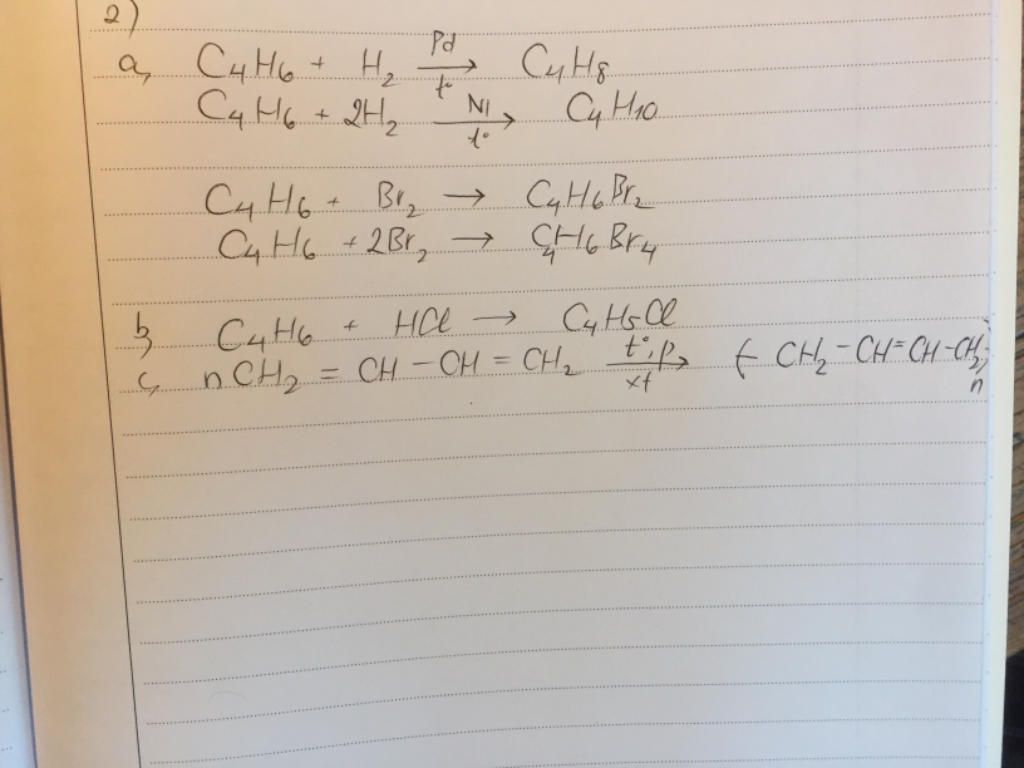 2)
a, C4H6 + H2 —Pd, t°→ C4H8
C4H6 + 2H2 —Ni, t°→ C4H10
C4H6 + Br2 → C4H6Br2
C4H6 + 2Br2 → C4H6Br4
b, C4H6 + HCl → C4H5Cl
c, nCH2 = CH – CH = CH2 —t°, p, xt→ (– CH2 – CH = CH – CH2)n